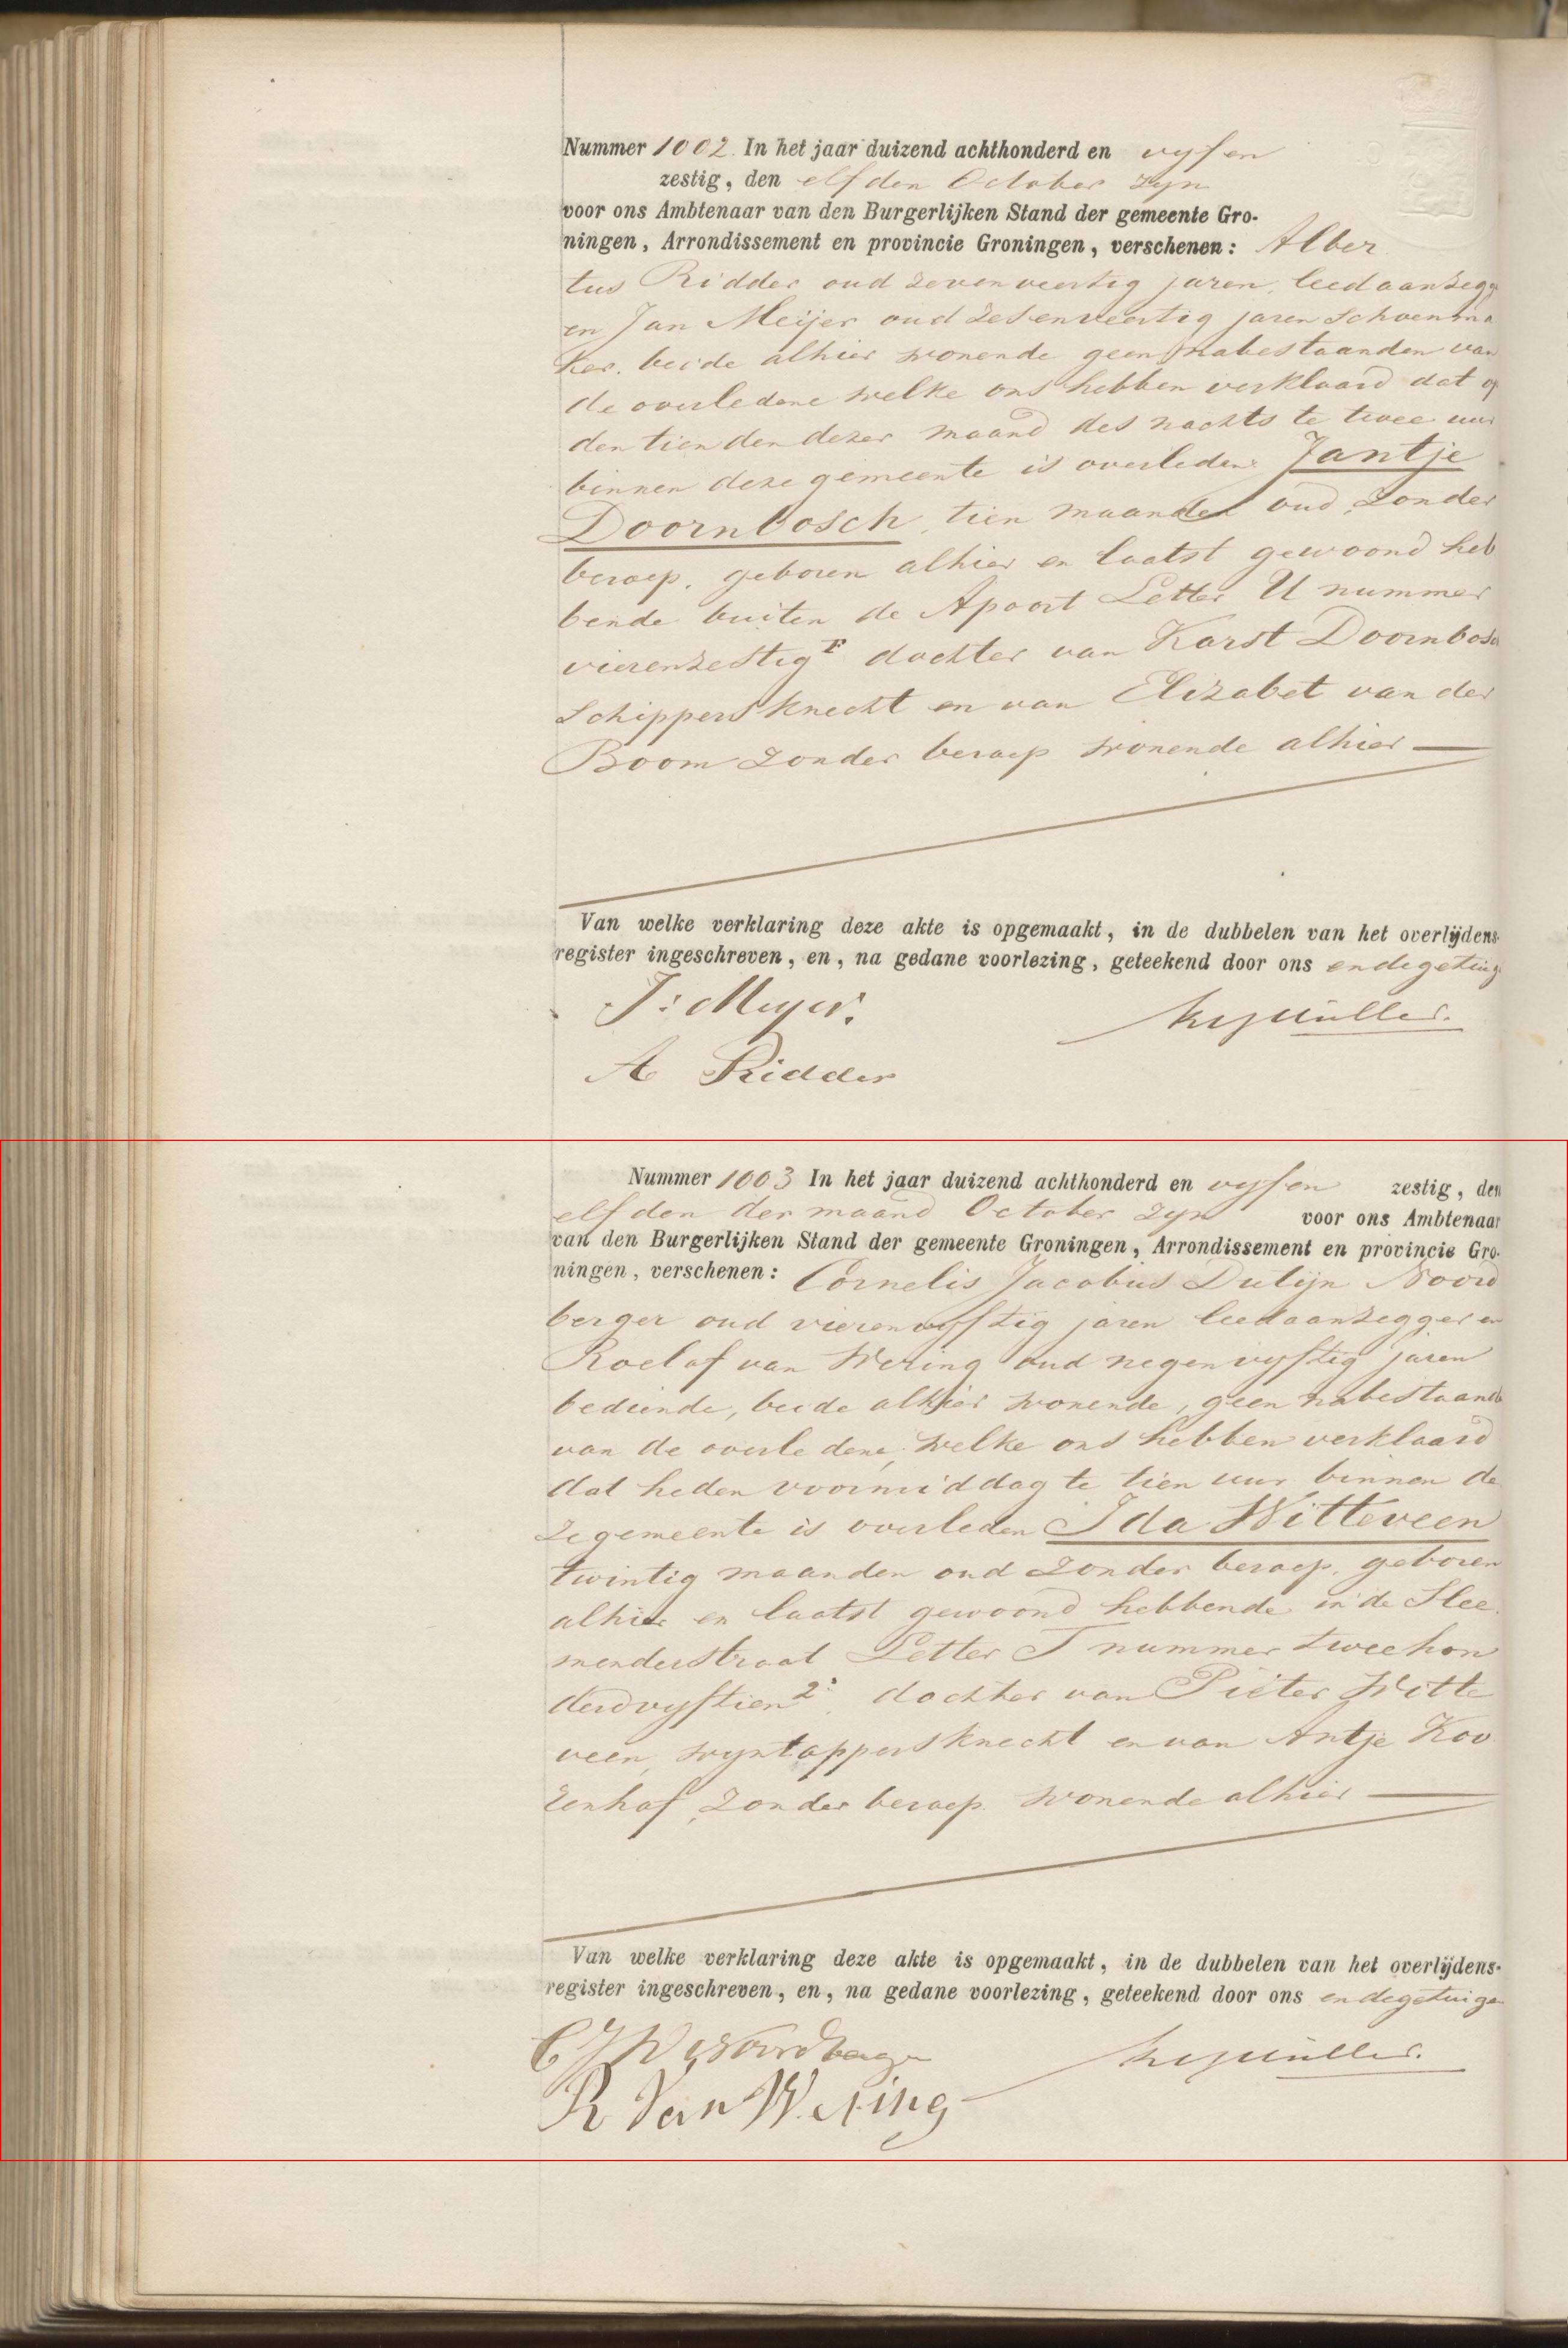 Nummer 1002. In het jaar duizend achthonderd en vyf en
zestig, den elfden October zyn
voor ons Ambtenaar van den Burgerlijken Stand der gemeente Gro-
ningen, Arrondissement en provincie Groningen, verschenen: Alber
tus Ridder oud zevenveertig jaren, leedaanzegg
en Jan Meijer oud zesenveertig jaren schoenma
ker, beide alhier wonende geen nabestaanden van
de overledene welke ons hebben verklaard dat op
den tienden dezer maand des nachts te twee uur
binnen deze gemeente is overleden Jantje
Doornbosch, tien maanden oud, zonder
beroep, geboren alhier en laatst gewoond heb
bende buiten de Apoort Letter U nummer
vierenzestig F dochter van Karst Doornbosch
Schippersknecht en van Elizabet van der
Boom zonder beroep wonende alhier
Van welke verklaring deze akte is opgemaakt, in de dubbelen van het overlijdens-
register ingeschreven, en, na gedane voorlezing, geteekend door ons en de getuig
J: Meyer.
A Ridder
Nummer 1003 In het jaar duizend achthonderd en vyf en zestig, den
elfden der maand October zyn voor ons Ambtenaar
van den Burgerlijken Stand der gemeente Groningen, Arrondissement en provincie Gro-
ningen, verschenen: Cornelis Jacobus Dutijn Noord
berger oud vierenvyftig jaren leedaanzegger en
Roelof van Wering oud negenvyftig jaren
bediende, beide alhier wonende, geen nabestaande
van de overledene, welke ons hebben verklaard
dat heden voormiddag te tien uur binnen de
ze gemeente is overleden Ida Witteveen
twintig maanden oud zonder beroep, geboren
alhier en laatst gewoond hebbende in de Slee
menderstraat Letter T nummer tweehon
derdvyftien 2: dochter van Pieter Witte
veen, wyntappersknecht en van Antje Koo
zenhof, zonder beroep wonende alhier
Van welke verklaring deze akte is opgemaakt, in de dubbelen van het overlijdens-
register ingeschreven, en, na gedane voorlezing, geteekend door ons en de getuigen
C J D Noordberger
R Van Wering